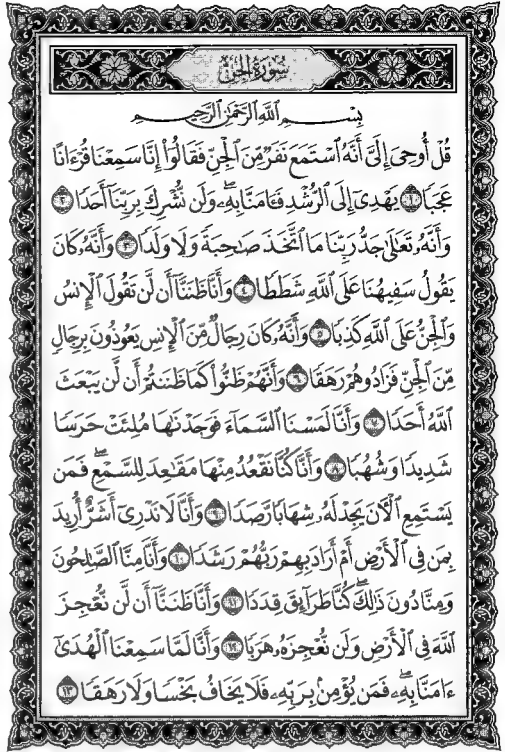 سُورَةُ الجِنِّ
بِسْمِ اللَّهِ الرَّحْمَٰنِ الرَّحِيمِ
قُلْ أُوحِىَ إِلَىَّ أَنَّهُ ٱسْتَمَعَ نَفَرٌ مِّنَ ٱلْجِنِّ فَقَالُوٓا۟ إِنَّا سَمِعْنَا قُرْءَانًا
عَجَبًا ١ يَهْدِىٓ إِلَى ٱلرُّشْدِ فَـَٔامَنَّا بِهِۦ ۖ وَلَن نُّشْرِكَ بِرَبِّنَآ أَحَدًا ٢
وَأَنَّهُۥ تَعَٰلَىٰ جَدُّ رَبِّنَا مَا ٱتَّخَذَ صَٰحِبَةً وَلَا وَلَدًا ٣ وَأَنَّهُۥ كَانَ
يَقُولُ سَفِيهُنَا عَلَى ٱللَّهِ شَطَطًا ٤ وَأَنَّا ظَنَنَّآ أَن لَّن تَقُولَ ٱلْإِنسُ
وَٱلْجِنُّ عَلَى ٱللَّهِ كَذِبًا ٥ وَأَنَّهُۥ كَانَ رِجَالٌ مِّنَ ٱلْإِنسِ يَعُوذُونَ بِرِجَالٍ
مِّنَ ٱلْجِنِّ فَزَادُوهُمْ رَهَقًا ٦ وَأَنَّهُمْ ظَنُّوا۟ كَمَا ظَنَنتُمْ أَن لَّن يَبْعَثَ
ٱللَّهُ أَحَدًا ٧ وَأَنَّا لَمَسْنَا ٱلسَّمَآءَ فَوَجَدْنَٰهَا مُلِئَتْ حَرَسًا
شَدِيدًا وَشُهُبًا ٨ وَأَنَّا كُنَّا نَقْعُدُ مِنْهَا مَقَٰعِدَ لِلسَّمْعِ ۖ فَمَن
يَسْتَمِعِ ٱلْـَٔانَ يَجِدْ لَهُۥ شِهَابًا رَّصَدًا ٩ وَأَنَّا لَا نَدْرِىٓ أَشَرٌّ أُرِيدَ
بِمَن فِى ٱلْأَرْضِ أَمْ أَرَادَ بِهِمْ رَبُّهُمْ رَشَدًا ١٠ وَأَنَّا مِنَّا ٱلصَّٰلِحُونَ
وَمِنَّا دُونَ ذَٰلِكَ ۖ كُنَّا طَرَآئِقَ قِدَدًا ١١ وَأَنَّا ظَنَنَّآ أَن لَّن نُّعْجِزَ
ٱللَّهَ فِى ٱلْأَرْضِ وَلَن نُّعْجِزَهُۥ هَرَبًا ١٢ وَأَنَّا لَمَّا سَمِعْنَا ٱلْهُدَىٰٓ
ءَامَنَّا بِهِۦ ۖ فَمَن يُؤْمِنۢ بِرَبِّهِۦ فَلَا يَخَافُ بَخْسًا وَلَا رَهَقًا ١٣